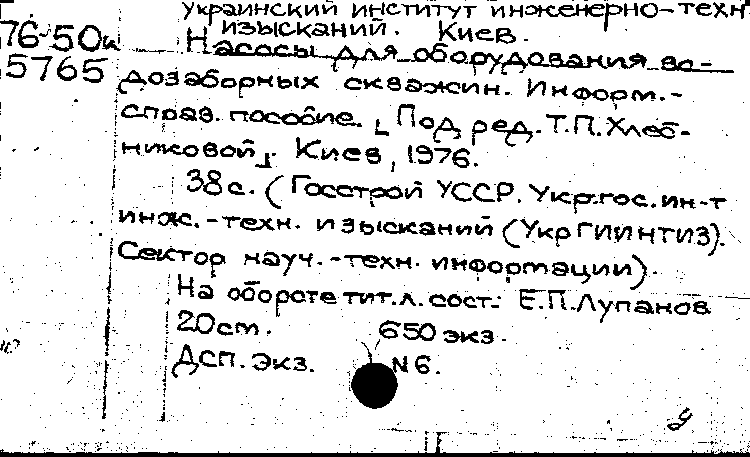 украинский институт инженерно-техн
изысканий. Киев.
76-50и
5765
Насосы для оборудования во-
дозаборных скважин. Информ.-
справ. пособие. [Под ред. Т.П.Хлеб-
никовой]. Киев, 1976.
38с. (Госстрой УССР. Укр.гос.ин-т
инж.-техн. изысканий (УкрГИИНТИЗ).
Сектор науч.-техн. информации).
На обороте тит.л. сост.: Е.П.Лупанов
20см. 650 экз.
ДСП. Экз. N6.